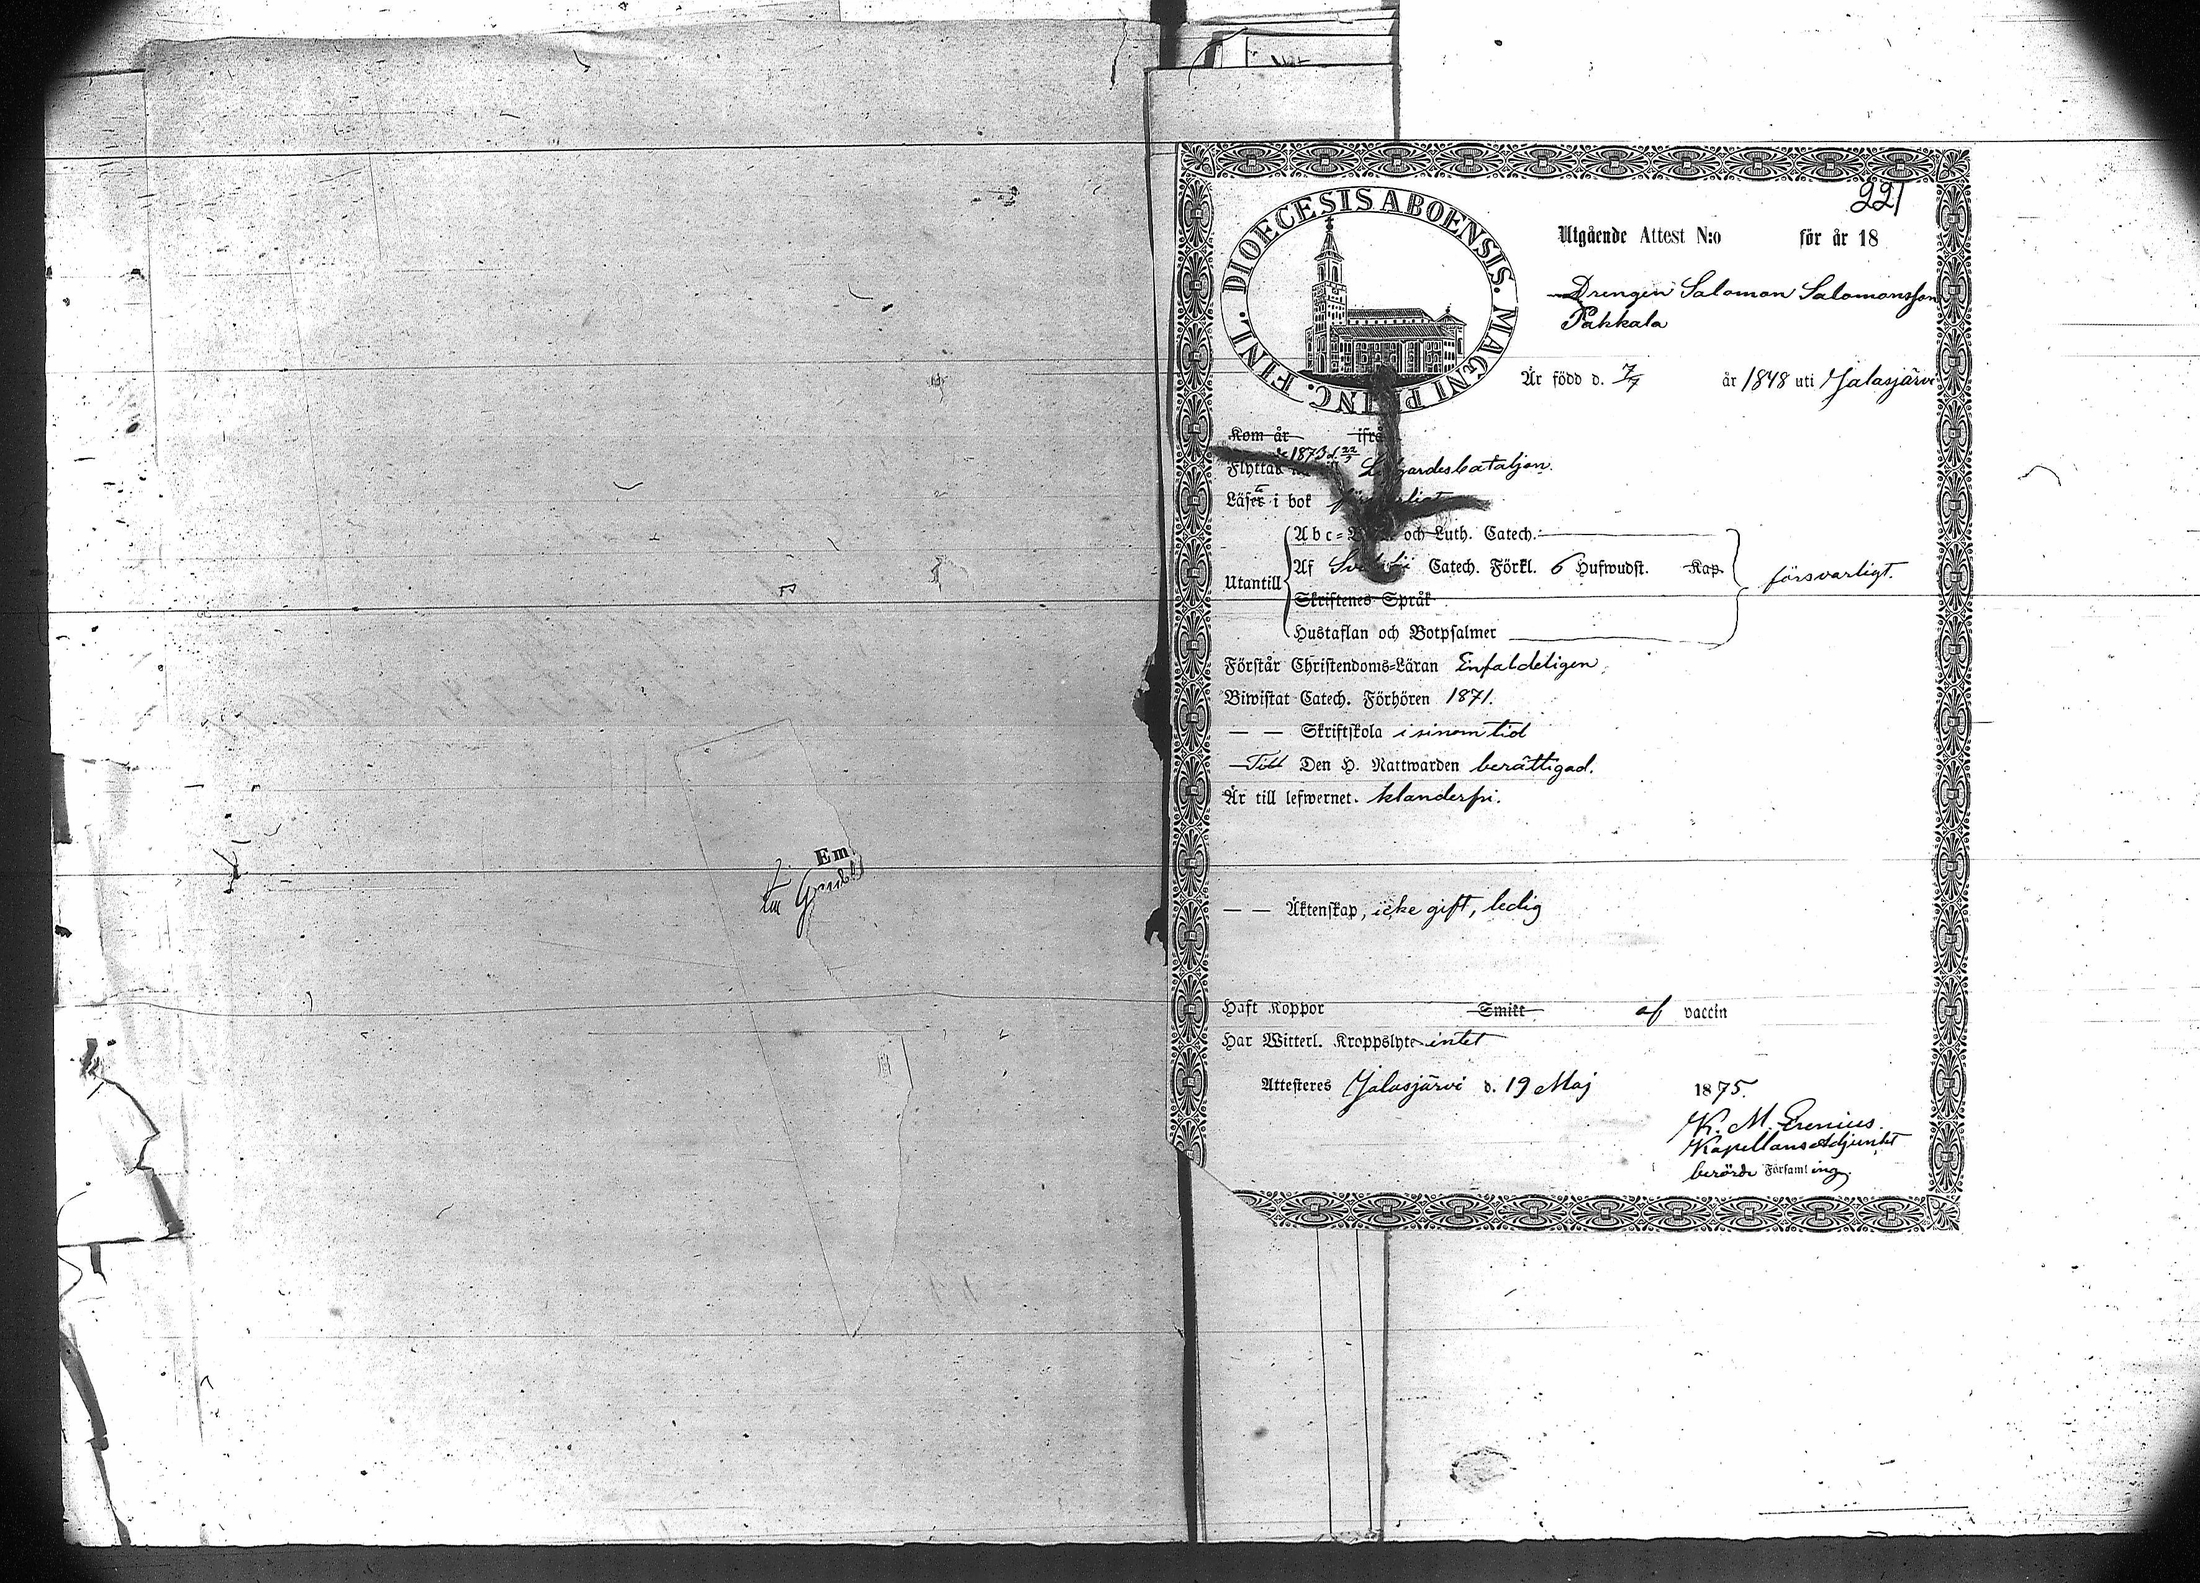 Em
221
DIOECESIS ABOENSIS. MAGNI PRINC. FINL.
Utgående Attest N:o för år 18
Drengen Salomon Salomonsson
Pakkala
Är född d. 7/7 år 1848 uti Jalasjärvi
Kom år ifrå
1873 d. 22/5
Flyttar L gardesbataljon.
Läser i bok
Abc- och Luth. Catech.
Af Catech. Förkl. 6 Hufwudst. Kap.
Utantill försvarligt.
Skriftenes Språk
Hustaflan och Botpsalmer
Förstår Christendoms-Läran Enfaldeligen.
Biwistat Catech. Förhören 1871.
— — Skriftskola i sinom tid
Till Den H. Nattwarden berättigad.
Är till lefwernet. klanderfri.
— — Äktenskap, icke gift, ledig
Haft Koppor Smitt af vaccin
Har Witterl. Kroppslyte intet
Attesteres Jalasjärvi d. 19 Maj 1875.
K. M.
Kapellansadjunkt
berörde Församling.